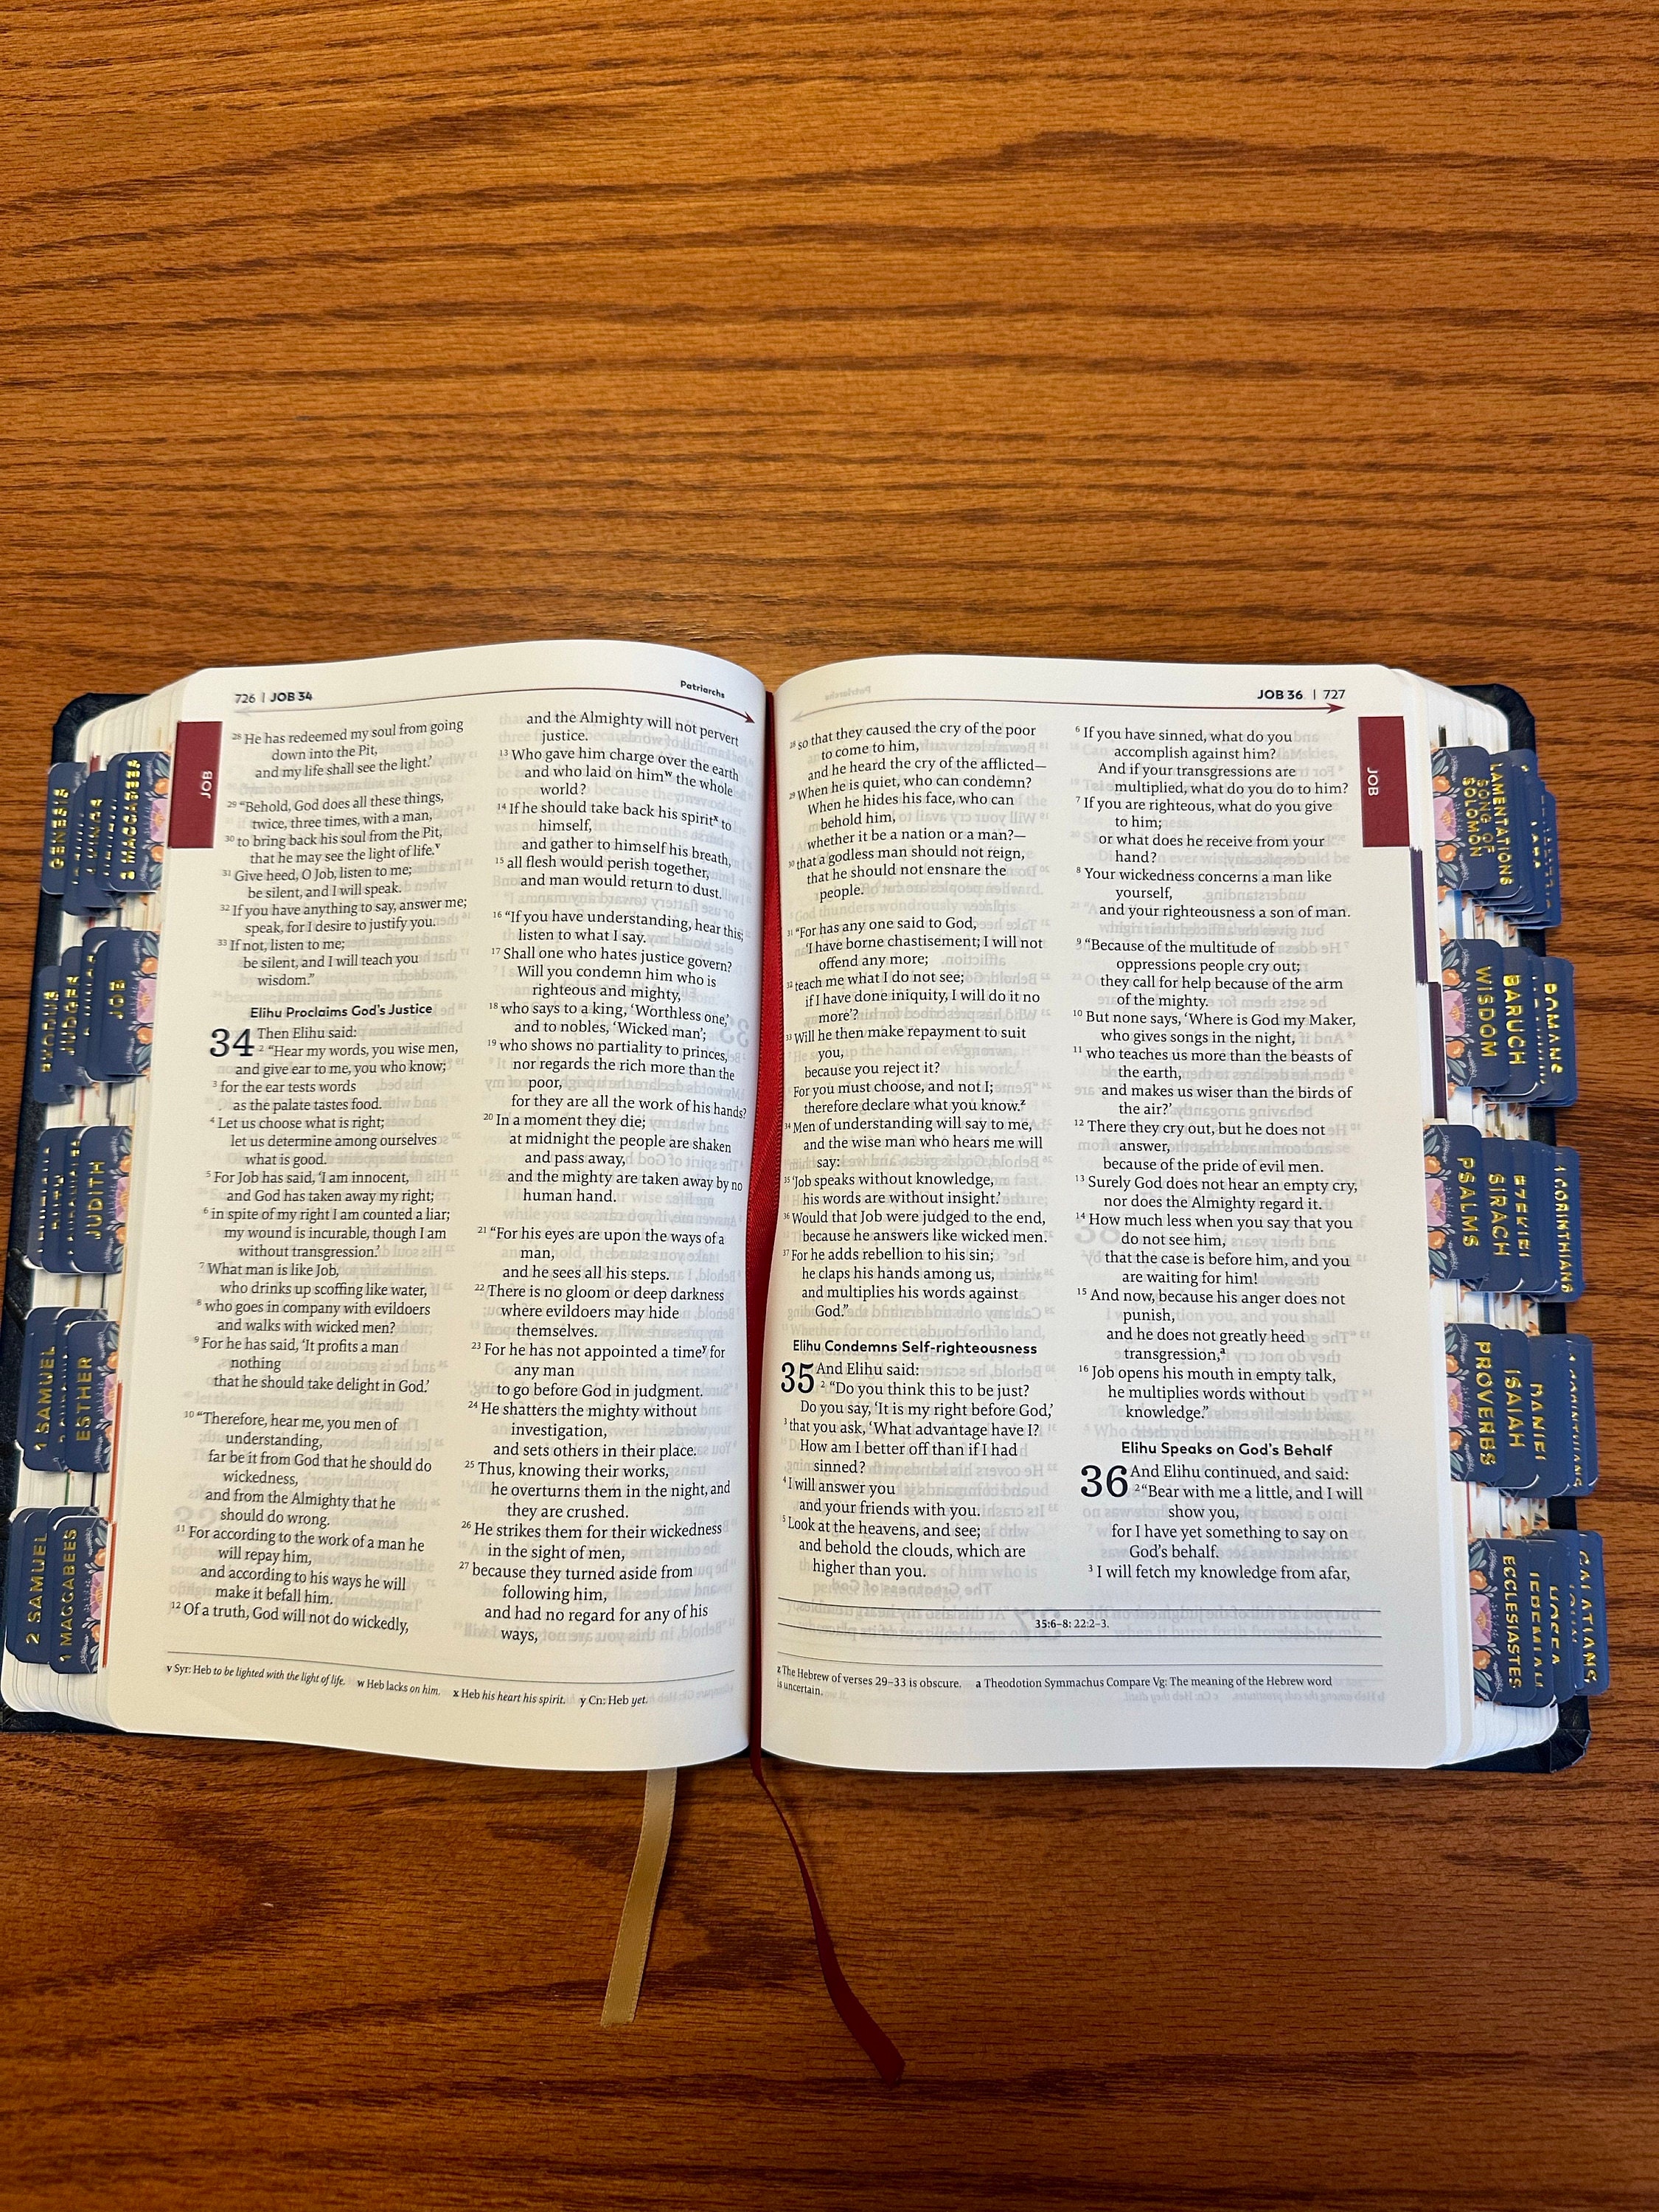 726 | JOB 34
Patriarchs
JOB
28 He has redeemed my soul from going
down into the Pit,
and my life shall see the light.’
29 “Behold, God does all these things,
twice, three times, with a man,
30 to bring back his soul from the Pit,
that he may see the light of life.v
31 Give heed, O Job, listen to me;
be silent, and I will speak.
32 If you have anything to say, answer me;
speak, for I desire to justify you.
33 If not, listen to me;
be silent, and I will teach you
wisdom.”
Elihu Proclaims God’s Justice
34 Then Elihu said:
2 “Hear my words, you wise men,
and give ear to me, you who know;
3 for the ear tests words
as the palate tastes food.
4 Let us choose what is right;
let us determine among ourselves
what is good.
5 For Job has said, ‘I am innocent,
and God has taken away my right;
6 in spite of my right I am counted a liar;
my wound is incurable, though I am
without transgression.’
7 What man is like Job,
who drinks up scoffing like water,
8 who goes in company with evildoers
and walks with wicked men?
9 For he has said, ‘It profits a man
nothing
that he should take delight in God.’
10 “Therefore, hear me, you men of
understanding,
far be it from God that he should do
wickedness,
and from the Almighty that he
should do wrong.
11 For according to the work of a man he
will repay him,
and according to his ways he will
make it befall him.
12 Of a truth, God will not do wickedly,
and the Almighty will not pervert
justice.
13 Who gave him charge over the earth
and who laid on himw the whole
world?
14 If he should take back his spiritx to
himself,
and gather to himself his breath,
15 all flesh would perish together,
and man would return to dust.
16 “If you have understanding, hear this;
listen to what I say.
17 Shall one who hates justice govern?
Will you condemn him who is
righteous and mighty,
18 who says to a king, ‘Worthless one,’
and to nobles, ‘Wicked man’;
19 who shows no partiality to princes,
nor regards the rich more than the
poor,
for they are all the work of his hands?
20 In a moment they die;
at midnight the people are shaken
and pass away,
and the mighty are taken away by no
human hand.
21 “For his eyes are upon the ways of a
man,
and he sees all his steps.
22 There is no gloom or deep darkness
where evildoers may hide
themselves.
23 For he has not appointed a timey for
any man
to go before God in judgment.
24 He shatters the mighty without
investigation,
and sets others in their place.
25 Thus, knowing their works,
he overturns them in the night, and
they are crushed.
26 He strikes them for their wickedness
in the sight of men,
27 because they turned aside from
following him,
and had no regard for any of his
ways,
v Syr: Heb to be lighted with the light of life. w Heb lacks on him. x Heb his heart his spirit. y Cn: Heb yet.
JOB 36 | 727
JOB
28 so that they caused the cry of the poor
to come to him,
and he heard the cry of the afflicted—
29 When he is quiet, who can condemn?
When he hides his face, who can
behold him,
whether it be a nation or a man?—
30 that a godless man should not reign,
that he should not ensnare the
people.
31 “For has any one said to God,
‘I have borne chastisement; I will not
offend any more;
32 teach me what I do not see;
if I have done iniquity, I will do it no
more’?
33 Will he then make repayment to suit
you,
because you reject it?
For you must choose, and not I;
therefore declare what you know.z
34 Men of understanding will say to me,
and the wise man who hears me will
say:
35 ‘Job speaks without knowledge,
his words are without insight.’
36 Would that Job were judged to the end,
because he answers like wicked men.
37 For he adds rebellion to his sin;
he claps his hands among us,
and multiplies his words against
God.”
Elihu Condemns Self-righteousness
35 And Elihu said:
2 “Do you think this to be just?
Do you say, ‘It is my right before God,’
3 that you ask, ‘What advantage have I?
How am I better off than if I had
sinned?’
4 I will answer you
and your friends with you.
5 Look at the heavens, and see;
and behold the clouds, which are
higher than you.
6 If you have sinned, what do you
accomplish against him?
And if your transgressions are
multiplied, what do you do to him?
7 If you are righteous, what do you give
to him;
or what does he receive from your
hand?
8 Your wickedness concerns a man like
yourself,
and your righteousness a son of man.
9 “Because of the multitude of
oppressions people cry out;
they call for help because of the arm
of the mighty.
10 But none says, ‘Where is God my Maker,
who gives songs in the night,
11 who teaches us more than the beasts of
the earth,
and makes us wiser than the birds of
the air?’
12 There they cry out, but he does not
answer,
because of the pride of evil men.
13 Surely God does not hear an empty cry,
nor does the Almighty regard it.
14 How much less when you say that you
do not see him,
that the case is before him, and you
are waiting for him!
15 And now, because his anger does not
punish,
and he does not greatly heed
transgression,a
16 Job opens his mouth in empty talk,
he multiplies words without
knowledge.”
Elihu Speaks on God’s Behalf
36 And Elihu continued, and said:
2 “Bear with me a little, and I will
show you,
for I have yet something to say on
God’s behalf.
3 I will fetch my knowledge from afar,
35:6–8: 22:2–3.
z The Hebrew of verses 29–33 is obscure. a Theodotion Symmachus Compare Vg: The meaning of the Hebrew word
is uncertain.
GENESIS
2 MACCABEES
EXODUS
JUDGES
JOB
RUTH
JUDITH
1 SAMUEL
ESTHER
2 SAMUEL
1 MACCABEES
SONG OF
SOLOMON
LAMENTATIONS
WISDOM
BARUCH
ROMANS
PSALMS
SIRACH
EZEKIEL
1 CORINTHIANS
PROVERBS
ISAIAH
DANIEL
ECCLESIASTES
JEREMIAH
HOSEA
GALATIANS